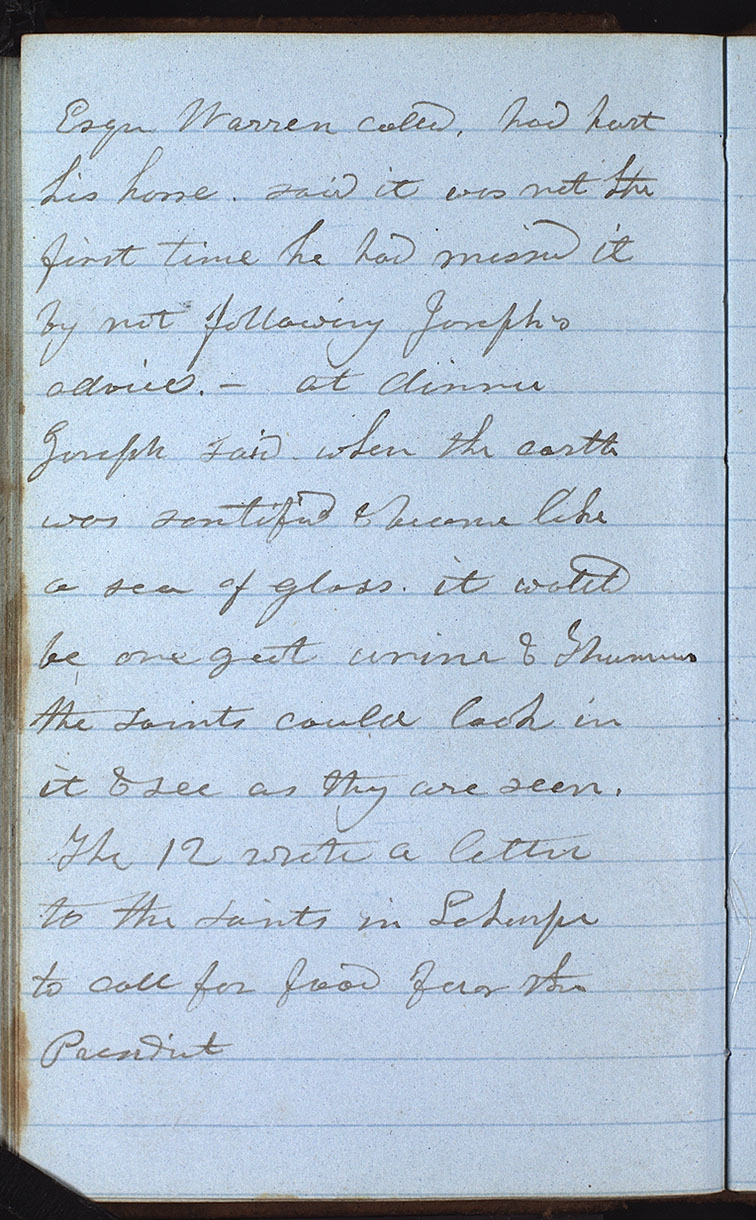 Esqu Warren called, had hurt
his horse. said it was not the
first time he had missed it
by not following Joseph's
advice. - at dinner
Joseph said. when the earth
was santified & became like
a sea of glass. it would
be one great urim & Thummim
the saints could look in
it & see as they are seen.
The 12 wrote a letter
to the saints in
to call for food for the
President